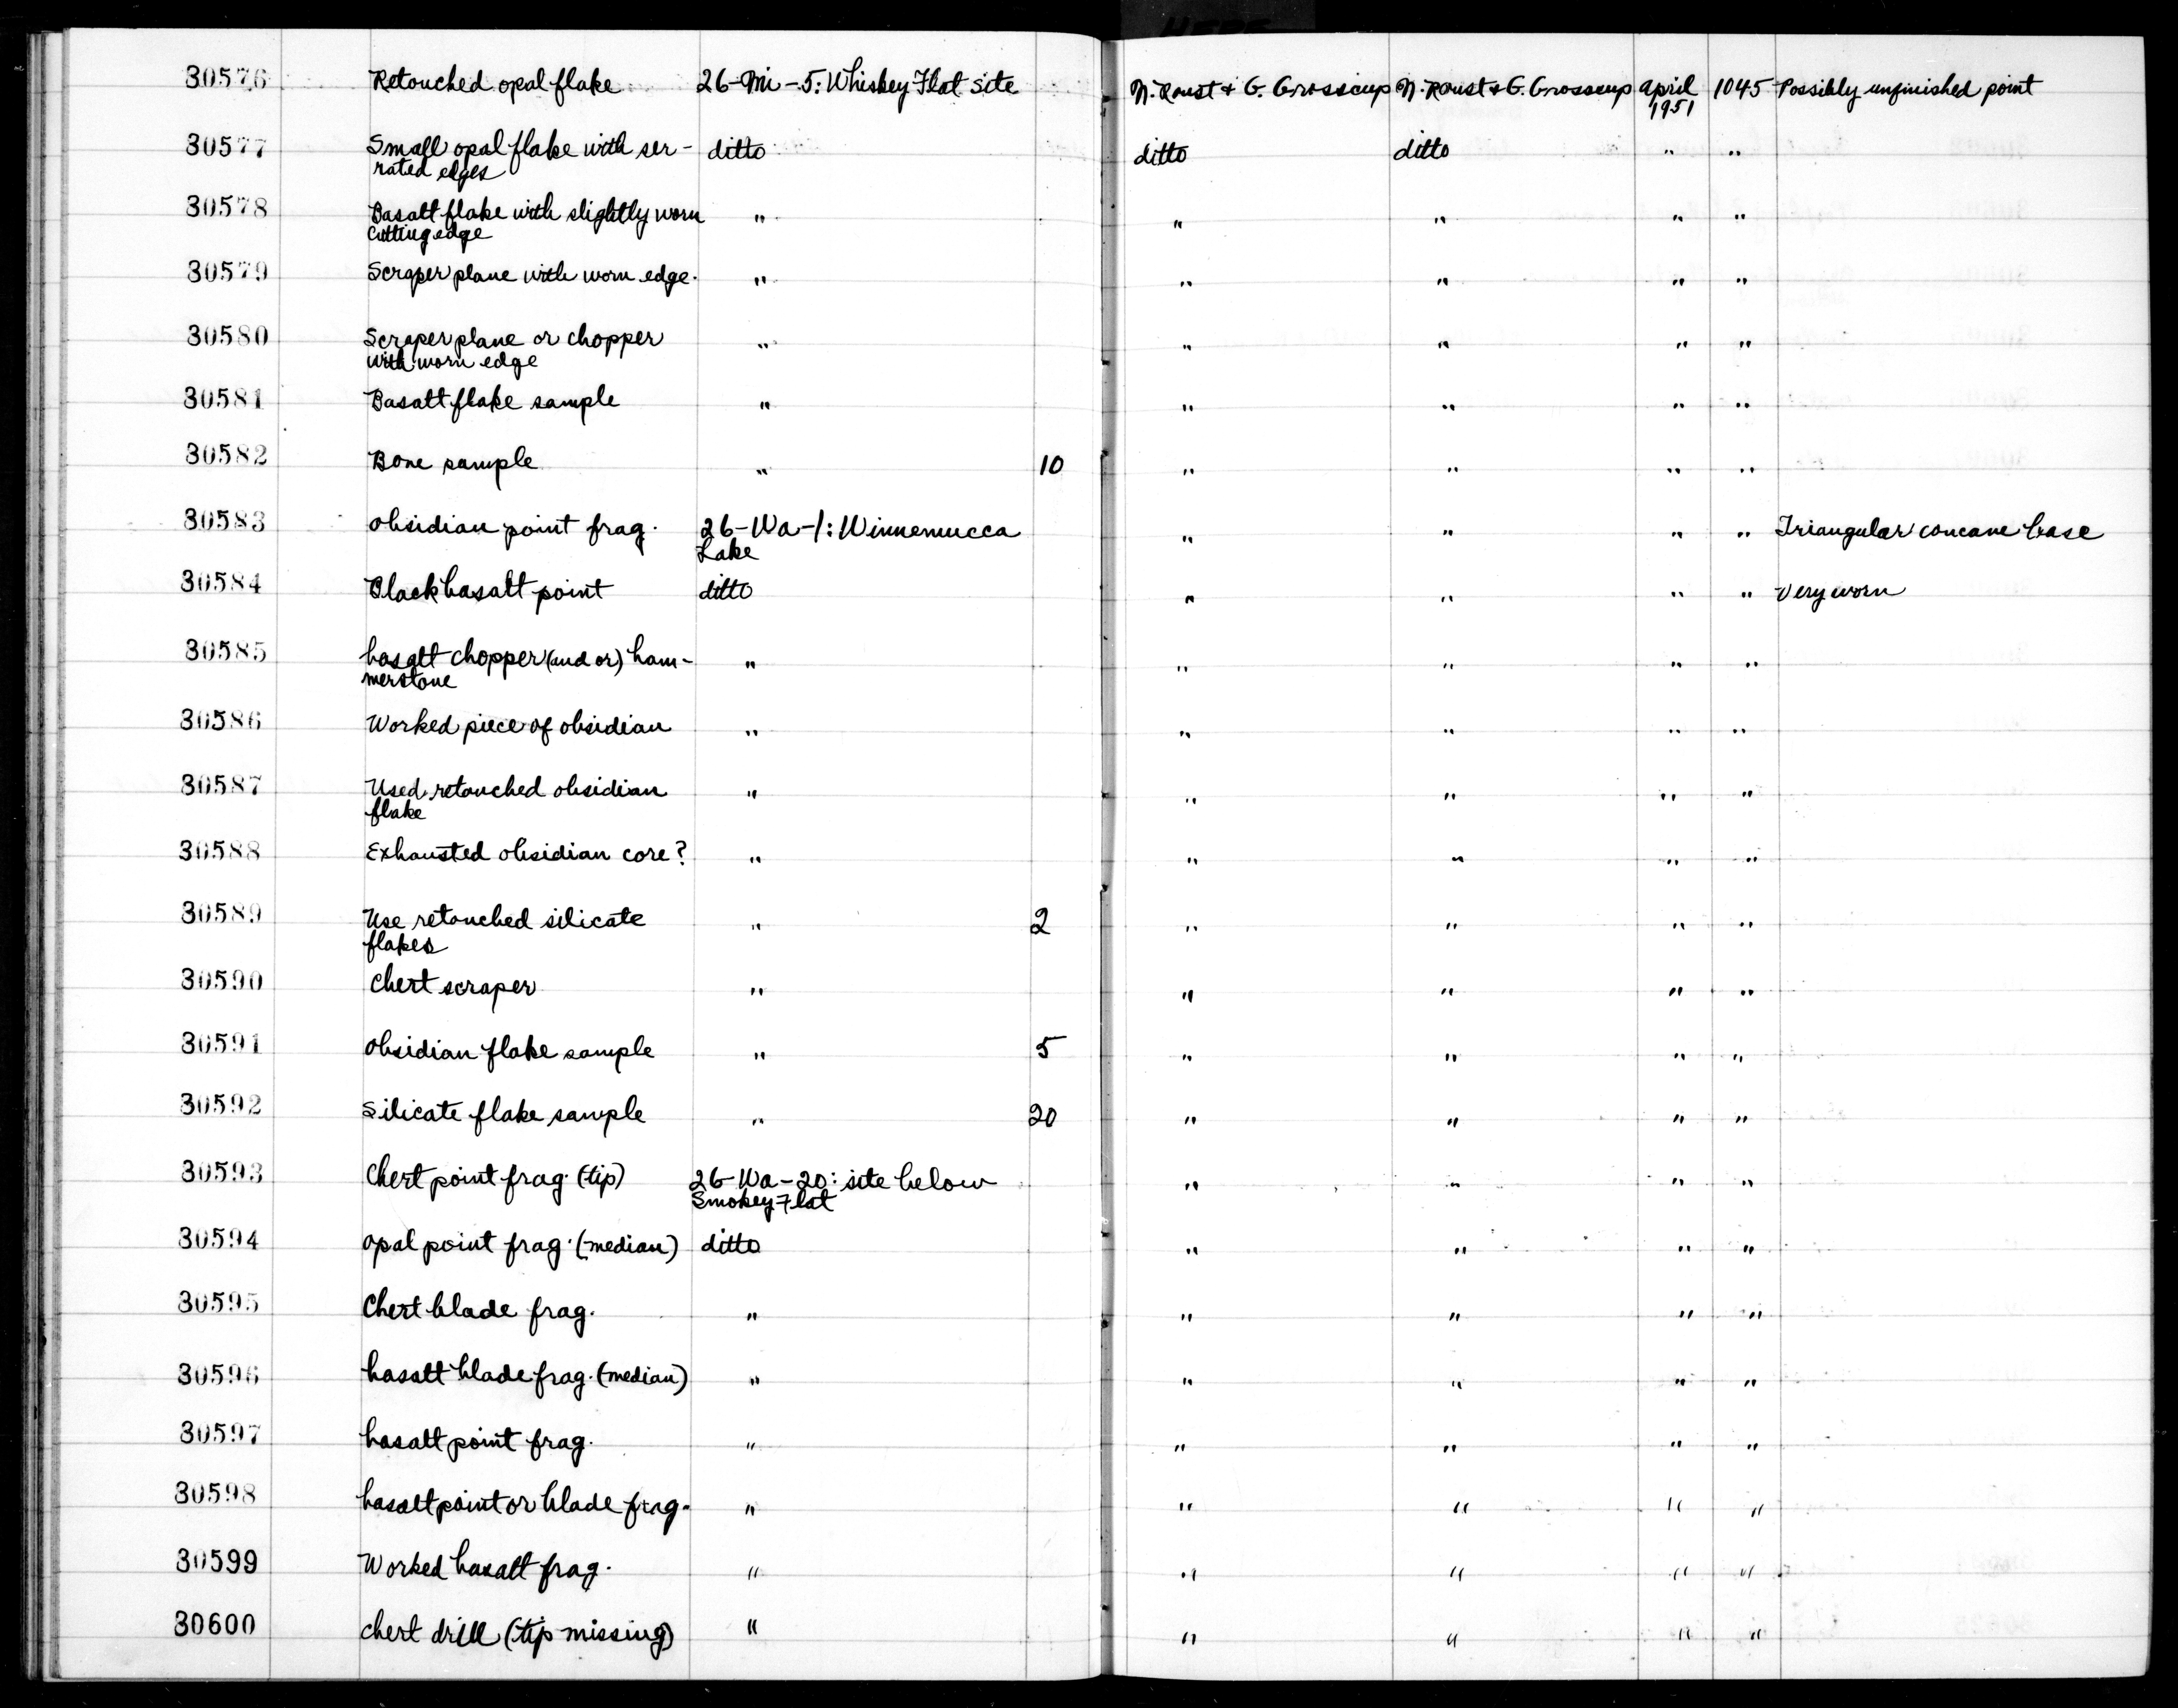 30576 Retouched opal flake 26-Mi-5: Whiskey Flat Site N. Roust & G. Grosscup N. Roust & G. Grosscup April 1045 Possibly unfinished point
1951
30577 Small opal flake with ser- ditto ditto ditto " "
rated edges
30578 Basalt flake with slightly worn " " " " "
cutting edge
30579 Scraper plane with worn edge. " " " " "
30580 Scraper plane or chopper " " " " "
with worn edge
30581 Basalt flake sample " " " " "
30582 Bone sample " 10 " " " "
30583 obsidian point frag. 26-Wa-1: Winnemucca " " " " Triangular concave base
Lake
30584 Black basalt point ditto " " " " Very worn
30585 basalt chopper (and or) ham- " " " " "
merstone
30586 Worked piece of obsidian " " " " "
30587 Used retouched obsidian " " " " "
flake
30588 Exhausted obsidian core? " " " " "
30589 Use retouched silicate " 2 " " " "
flakes
30590 Chert scraper " " " " "
30591 obsidian flake sample " 5 " " " "
30592 Silicate flake sample " 20 " " " "
30593 Chert point frag. (tip) 26-Wa-20: site below " " " "
Smokey Flat
30594 opal point frag. (median) ditto " " " "
30595 Chert blade frag. " " " " "
30596 basalt blade frag. (median) " " " " "
30597 basalt point frag. " " " " "
30598 basalt point or blade frag. " " " " "
30599 Worked basalt frag. " " " " "
30600 chert drill (tip missing) " " " " "